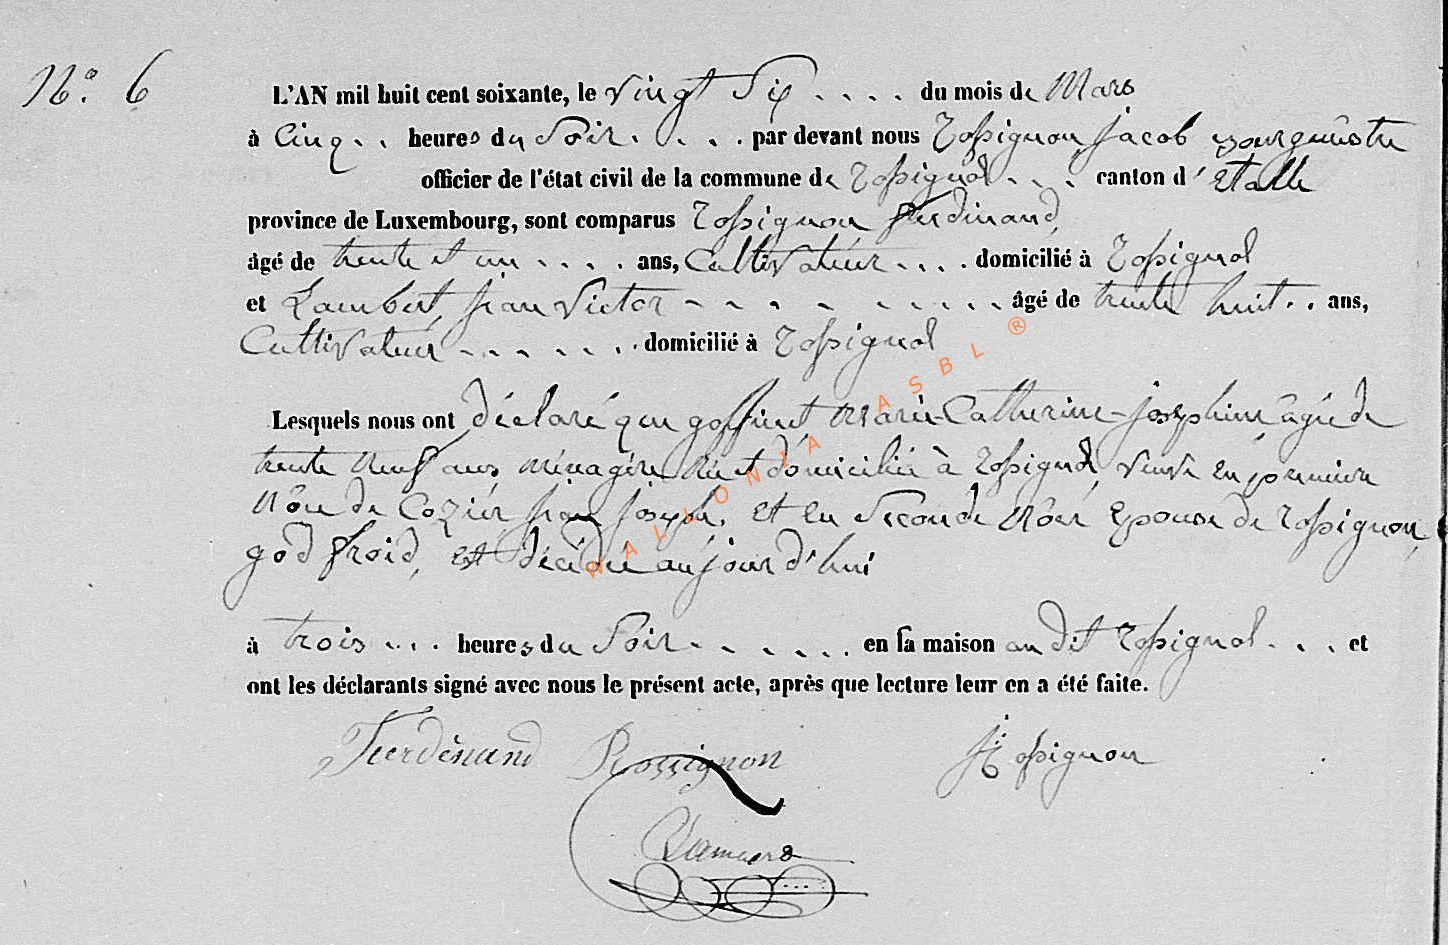 N° 6
L'AN mil huit cent soixante, le vingt Six .... du mois de Mars
à Cinq .. heures du Soir .... par devant nous Rossignon Jacob Bourguèstre
officier de l'état civil de la commune de Rossignol ... canton d'Etalle
province de Luxembourg, sont comparus Rossignon Ferdinand,
âgé de trente et un .... ans, Cultivateur .... domicilié à Rossignol
et Lambert, jean Victor - - - - - - - - - . âgé de trente huit .. ans,
Cultivateur - - - - - - . domicilié à Rossignol
Lesquels nous ont déclaré que goffinet Marie-Catherine-Josephine âgée de
trente neuf ans ménagère née et domiciliée à Rossignol, veuve en première
Nôce de Cozier jean joseph, et en Seconde Nôce Epouse de Rossignon
godfroid, est décédée aujourd'hui
à trois ... heures du Soir - - - - - - . en sa maison au dit Rossignol ... et
ont les déclarants signé avec nous le présent acte, après que lecture leur en a été faite.
Ferdinand Rossignon J Rossignon
WALLONIA ASBL ®